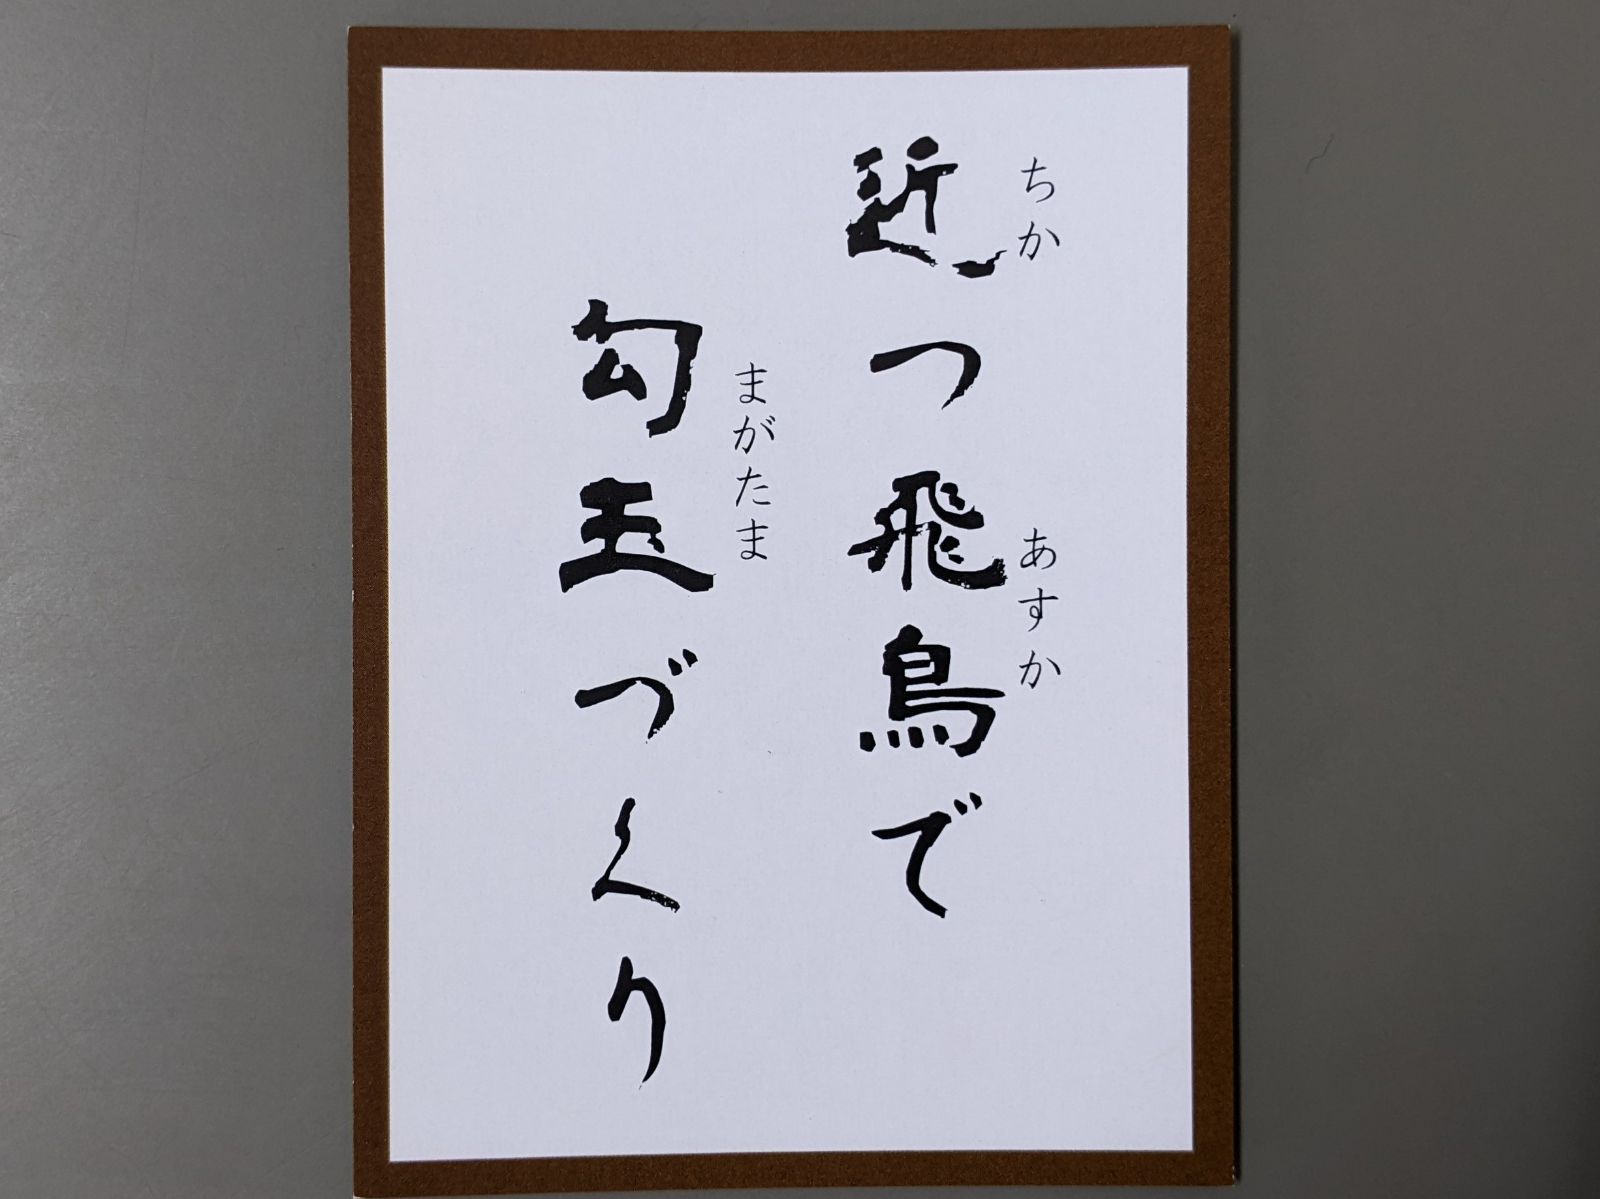 近つ飛鳥で
ちか
あすか
勾玉づくり
まがたま